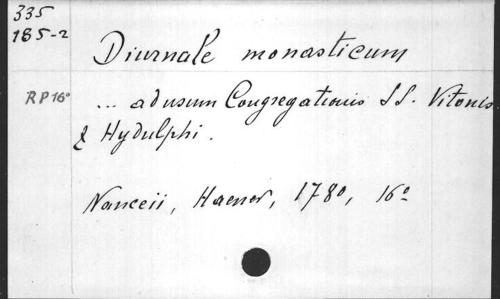 335
185-2
Diurnale monasticum
RP 16°
... ad usum Congregationis SS. Vitonis
& Hydulphi.
Nanceii, Haener, 1780, 16°